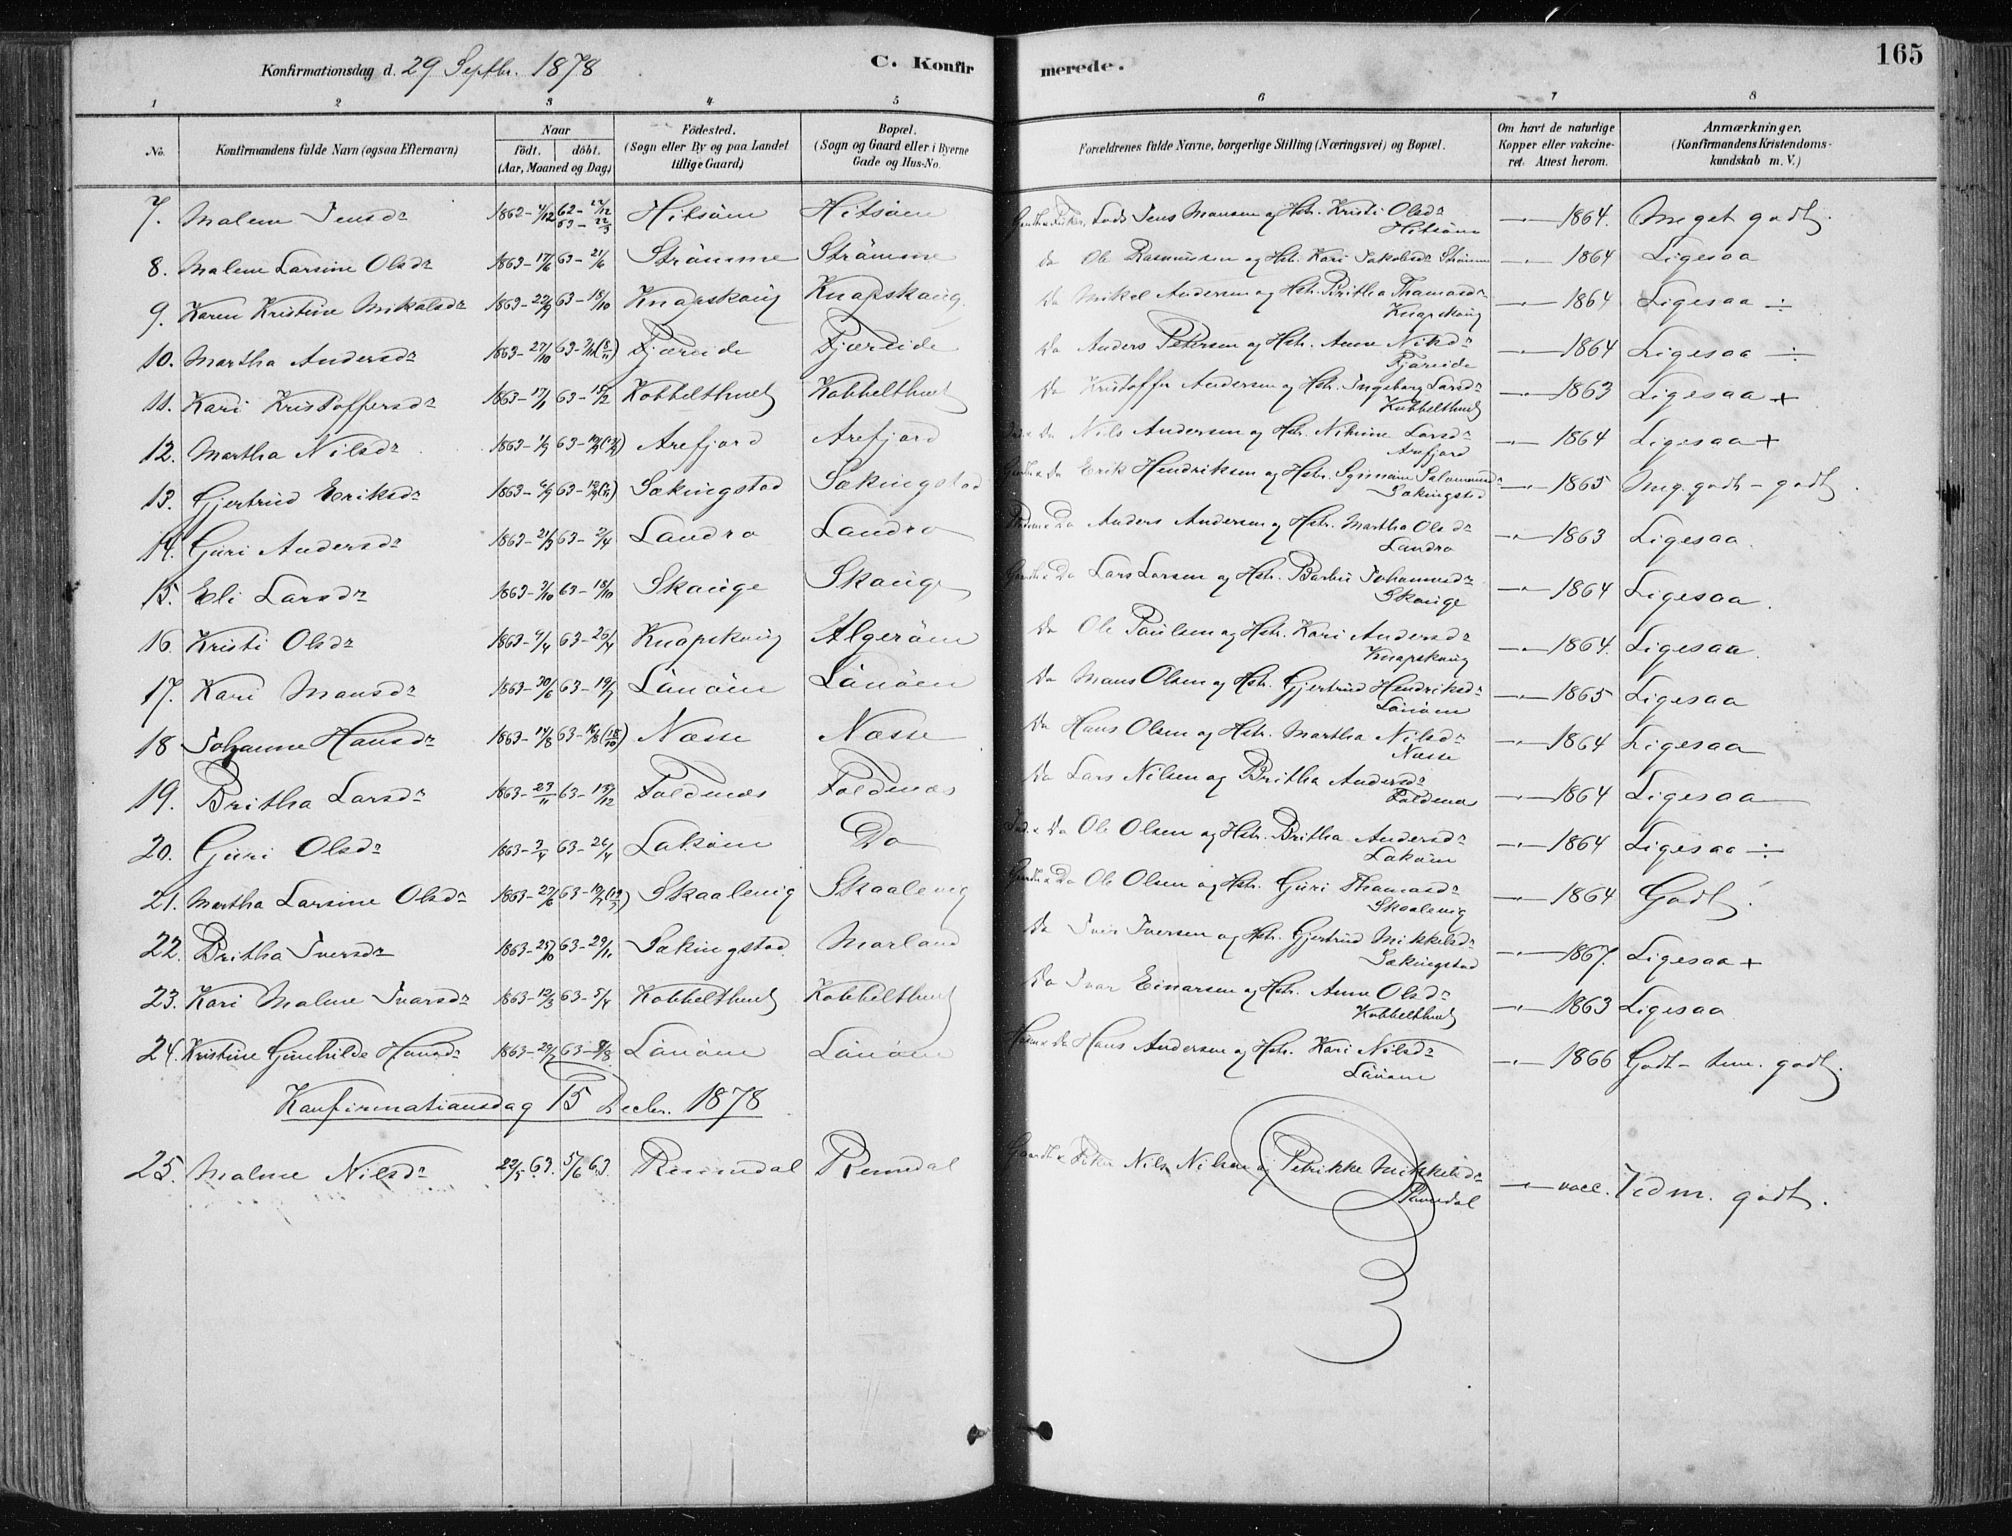 Konfirmationsdag d. 29 Septbr. 1878 C. Konfirmerede. 165
1 2 3 4 5 6 7 8
No. Konfirmandens fulde Navn (ogsaa Efternavn) Naar født. døbt. (Aar, Maaned og Dag) Fødested. (Sogn eller By og paa Landet tillige Gaard) Bopæl. (Sogn og Gaard eller i Byerne Gade og Hus-No. Forældrenes fulde Navne, borgerlige Stilling (Næringsvei) og Bopæl. Om havt de naturlige Kopper eller vakcineret. Attest herom. Anmærkninger. (Konfirmandens Kristendomskundskab m. V.)
7. Malene Jensdr 1862-4/12 62-17/12 63-22/3 Hitsöen Hitsöen Jens Monsen og Hstr. Kristi Olsdr Hitsöen —"— 1864. Meget godt.
8. Malene Larsine Olsdr 1863-17/6 63-21/6 Strömme Strömme Do Ole Rasmussen og Hstr. Kari Jakobsdr Strömme —"— 1864 Ligesaa
9. Karen Kristine Mikalsdr 1863-22/9 63-18/10 Knapskoug Knapskoug. Do Mikel Andersen og Hstr. Britha Thomasdr Knapskoug —"— 1864 Ligesaa ÷
10. Martha Andersdr 1863-27/10 63- Fjæreide Fjæreide Do Anders Petersen og Hstr. Anne Nilsdr Fjæreide —"— 1864 Ligesaa ÷
11. Kari Kristoffersdr 1863-17/1 63-15/2 Kobbelthvet Kobbelthvet Do Kristoffer Andersen og Hstr. Ingeborg Larsdr Kobbelthvet —"— 1863 Ligesaa +
12. Martha Nilsdr 1863- 63- Arefjord Arefjord Do Nils Andersen og Hstr. Nikoline Larsdr Arefjord —"— 1864 Ligesaa +
13. Gjertrud Eriksdr 1863-6/9 63- Sækingstad Sækingstad Do Erik Hendriksen og Hstr. Synneve Salomonsdr Sækingstad —"— 1865 Meg. godt – godt.
14. Guri Andersdr 1863-21/3 63-2/4 Landro Landro Do Anders Andersen og Hstr. Martha Olsdr Landro —"— 1863 Ligesaa.
15. Eli Larsdr 1863-7/10 63-18/10 Skouge Skouge Do Lars Larsen og Hstr. Barbru Johannesdr Skouge —"— 1864 Ligesaa.
16. Kristi Olsdr 1863-9/4 63-26/4 Knapskoug Algeröen Do Ole Paulsen og Hstr. Kari Andersdr Knapskoug —"— 1864. Ligesaa.
17. Kari Monsdr 1863-30/6 63-19/7 Lönöen Lönöen Do Mons Olsen og Hstr. Gjertrud Hendriksdr Lönöen —"— 1865 Ligesaa
18 Johanne Hansdr 1863-14/8 63-16/8 (18/10) Næsse Næsse Do Hans Olsen og Hstr. Martha Nilsdr Næsse —"— 1864 Ligesaa
19. Britha Larsdr 1863-23/11 63-13/12 Foldenæs Foldenæs Do Lars Nilsen og Britha Andersdr Foldenæs —"— 1864 Ligesaa
20. Guri Olsdr 1863-3/4 63-26/4 Loköen Do Do Ole Olsen og Hstr. Britha Andersdr Loköen —"— 1864 Ligesaa ÷
21. Martha Larsine Olsdr 1863-27/6 63- Skaalevig Skaalevig Do Ole Olsen og Hstr. Guri Thomasdr Skaalevig —"— 1864 Godt.
22. Britha Iversdr 1863-25/10 63-29/11 Sækingstad Morland Do Iver Iversen og Hstr. Gjertrud Mikkelsdr Sækingstad —"— 1867. Ligesaa +
23. Kari Malene Ivarsdr 1863-12/3 63-5/4 Kobbelthvet Kobbelthvet Do Ivar Einarsen og Hstr. Anne Olsdr Kobbelthvet —"— 1863 Ligesaa
24. Kristine Gunhilde Hansdr 1863-29/7 63-9/8 Lönöen Lönöen Do Hans Andersen og Hstr. Kari Nilsdr Lönöen —"— 1866 Godt – tem. godt.
Konfirmationsdag 15 Decbr. 1878
25. Malene Nilsdr 22/5.63. 5/6 63. Remedal Remedal Nils Nilsen og Petrikke Mikkelsdr Remedal —"— vacc. Tem. godt.